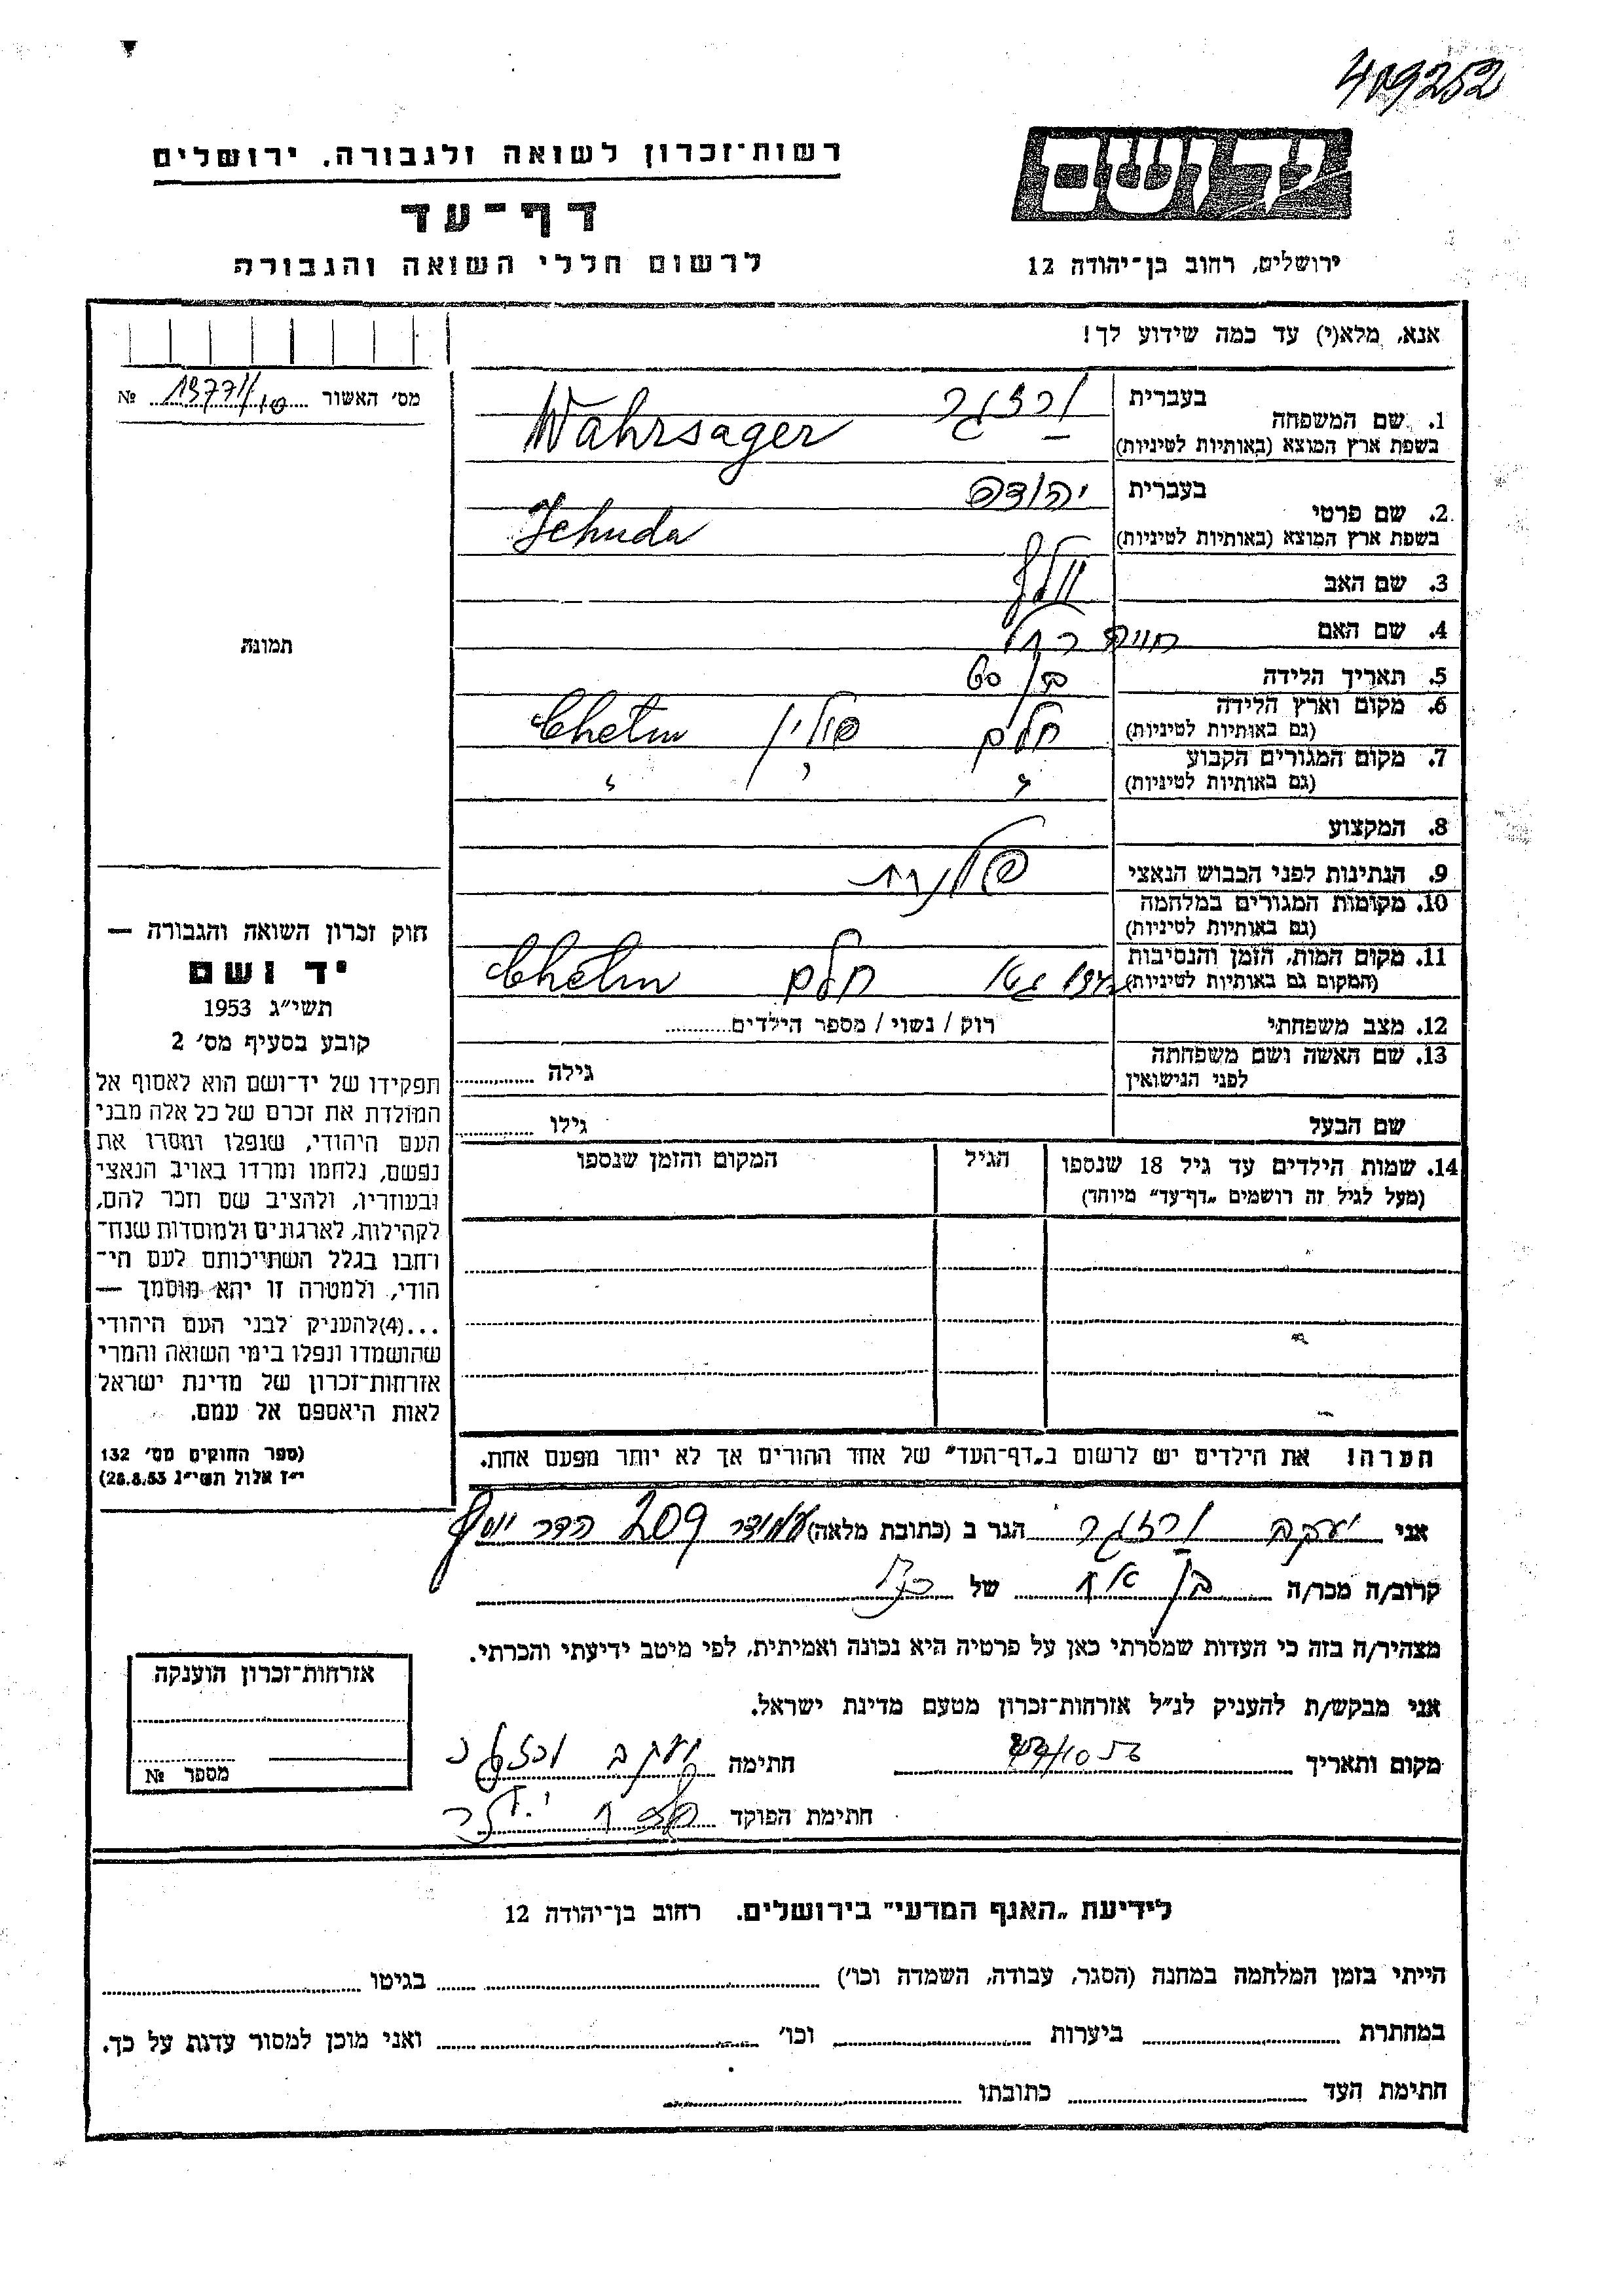 409252
רשות־זכרון לשואה ולגבורה. ירושלים
דף־עד
לרשום חללי השואה והגבורה
יד ושם
ירושלים, רחוב בן־יהודה 12
אנא, מלא(י) עד כמה שידוע לך!
מס׳ האשור №
1. שם המשפחה
בעברית ורזגר
בשפת ארץ המוצא (באותיות לטיניות) Wahrsager
2. שם פרטי
בעברית יהודה
בשפת ארץ המוצא (באותיות לטיניות) Jehuda
3. שם האב וולף
4. שם האם חויה רחל
5. תאריך הלידה בן 60
6. מקום וארץ הלידה (גם באותיות לטיניות) חלם פולין Chelm
7. מקום המגורים הקבוע (גם באותיות לטיניות) " " "
8. המקצוע
9. הנתינות לפני הכבוש הנאצי פולנית
10. מקומות המגורים במלחמה (גם באותיות לטיניות)
11. מקום המות, הזמן והנסיבות (המקום גם באותיות לטיניות) חלם Chelm
12. מצב משפחתי רוק / נשוי / מספר הילדים
13. שם האשה ושם משפחתה לפני הנישואין גילה
שם הבעל גילו
14. שמות הילדים עד גיל 18 שנספו
(מעל לגיל זה רושמים „דף־עד" מיוחד)
הגיל
המקום והזמן שנספו
תמונה
חוק זכרון השואה והגבורה —
יד ושם
תשי״ג 1953
קובע בסעיף מס׳ 2
תפקידו של יד־ושם הוא לאסוף אל
המולדת את זכרם של כל אלה מבני
העם היהודי, שנפלו ומסרו את
נפשם, נלחמו ומרדו באויב הנאצי
ובעוזריו, ולהציב שם וזכר להם,
לקהילות, לארגונים ולמוסדות שנח־
רחבו בגלל השתייכותם לעם הי־
הודי, ולמטרה זו יהא מוסמך —
...(4)להעניק לבני העם היהודי
שהושמדו ונפלו בימי השואה והמרי
אזרחות־זכרון של מדינת ישראל
לאות היאספם אל עמם.
(ספר החוקים מס׳ 132
י״ז אלול תשי״ג 28.8.53)
הערה! את הילדים יש לרשום ב„דף־העד" של אחד ההורים אך לא יותר מפעם אחת.
אני יעקב ורזגר הגר ב (כתובת מלאה) עמידר 209 הדר יוסף
קרוב/ה מכר/ה בן אח של
מצהיר/ה בזה כי העדות שמסרתי כאן על פרטיה היא נכונה ואמיתית, לפי מיטב ידיעתי והכרתי.
אני מבקש/ת להעניק לנ״ל אזרחות־זכרון מטעם מדינת ישראל.
מקום ותאריך חתימה יעקב ורזגר
חתימת הפוקד
אזרחות־זכרון הוענקה
מספר №
לידיעת „האגף המדעי" בירושלים. רחוב בן־יהודה 12
הייתי בזמן המלחמה במחנה (הסגר, עבודה, השמדה וכו׳) בגיטו
במחתרת ביערות וכו׳ ואני מוכן למסור עדות על כך.
חתימת העד כתובתו